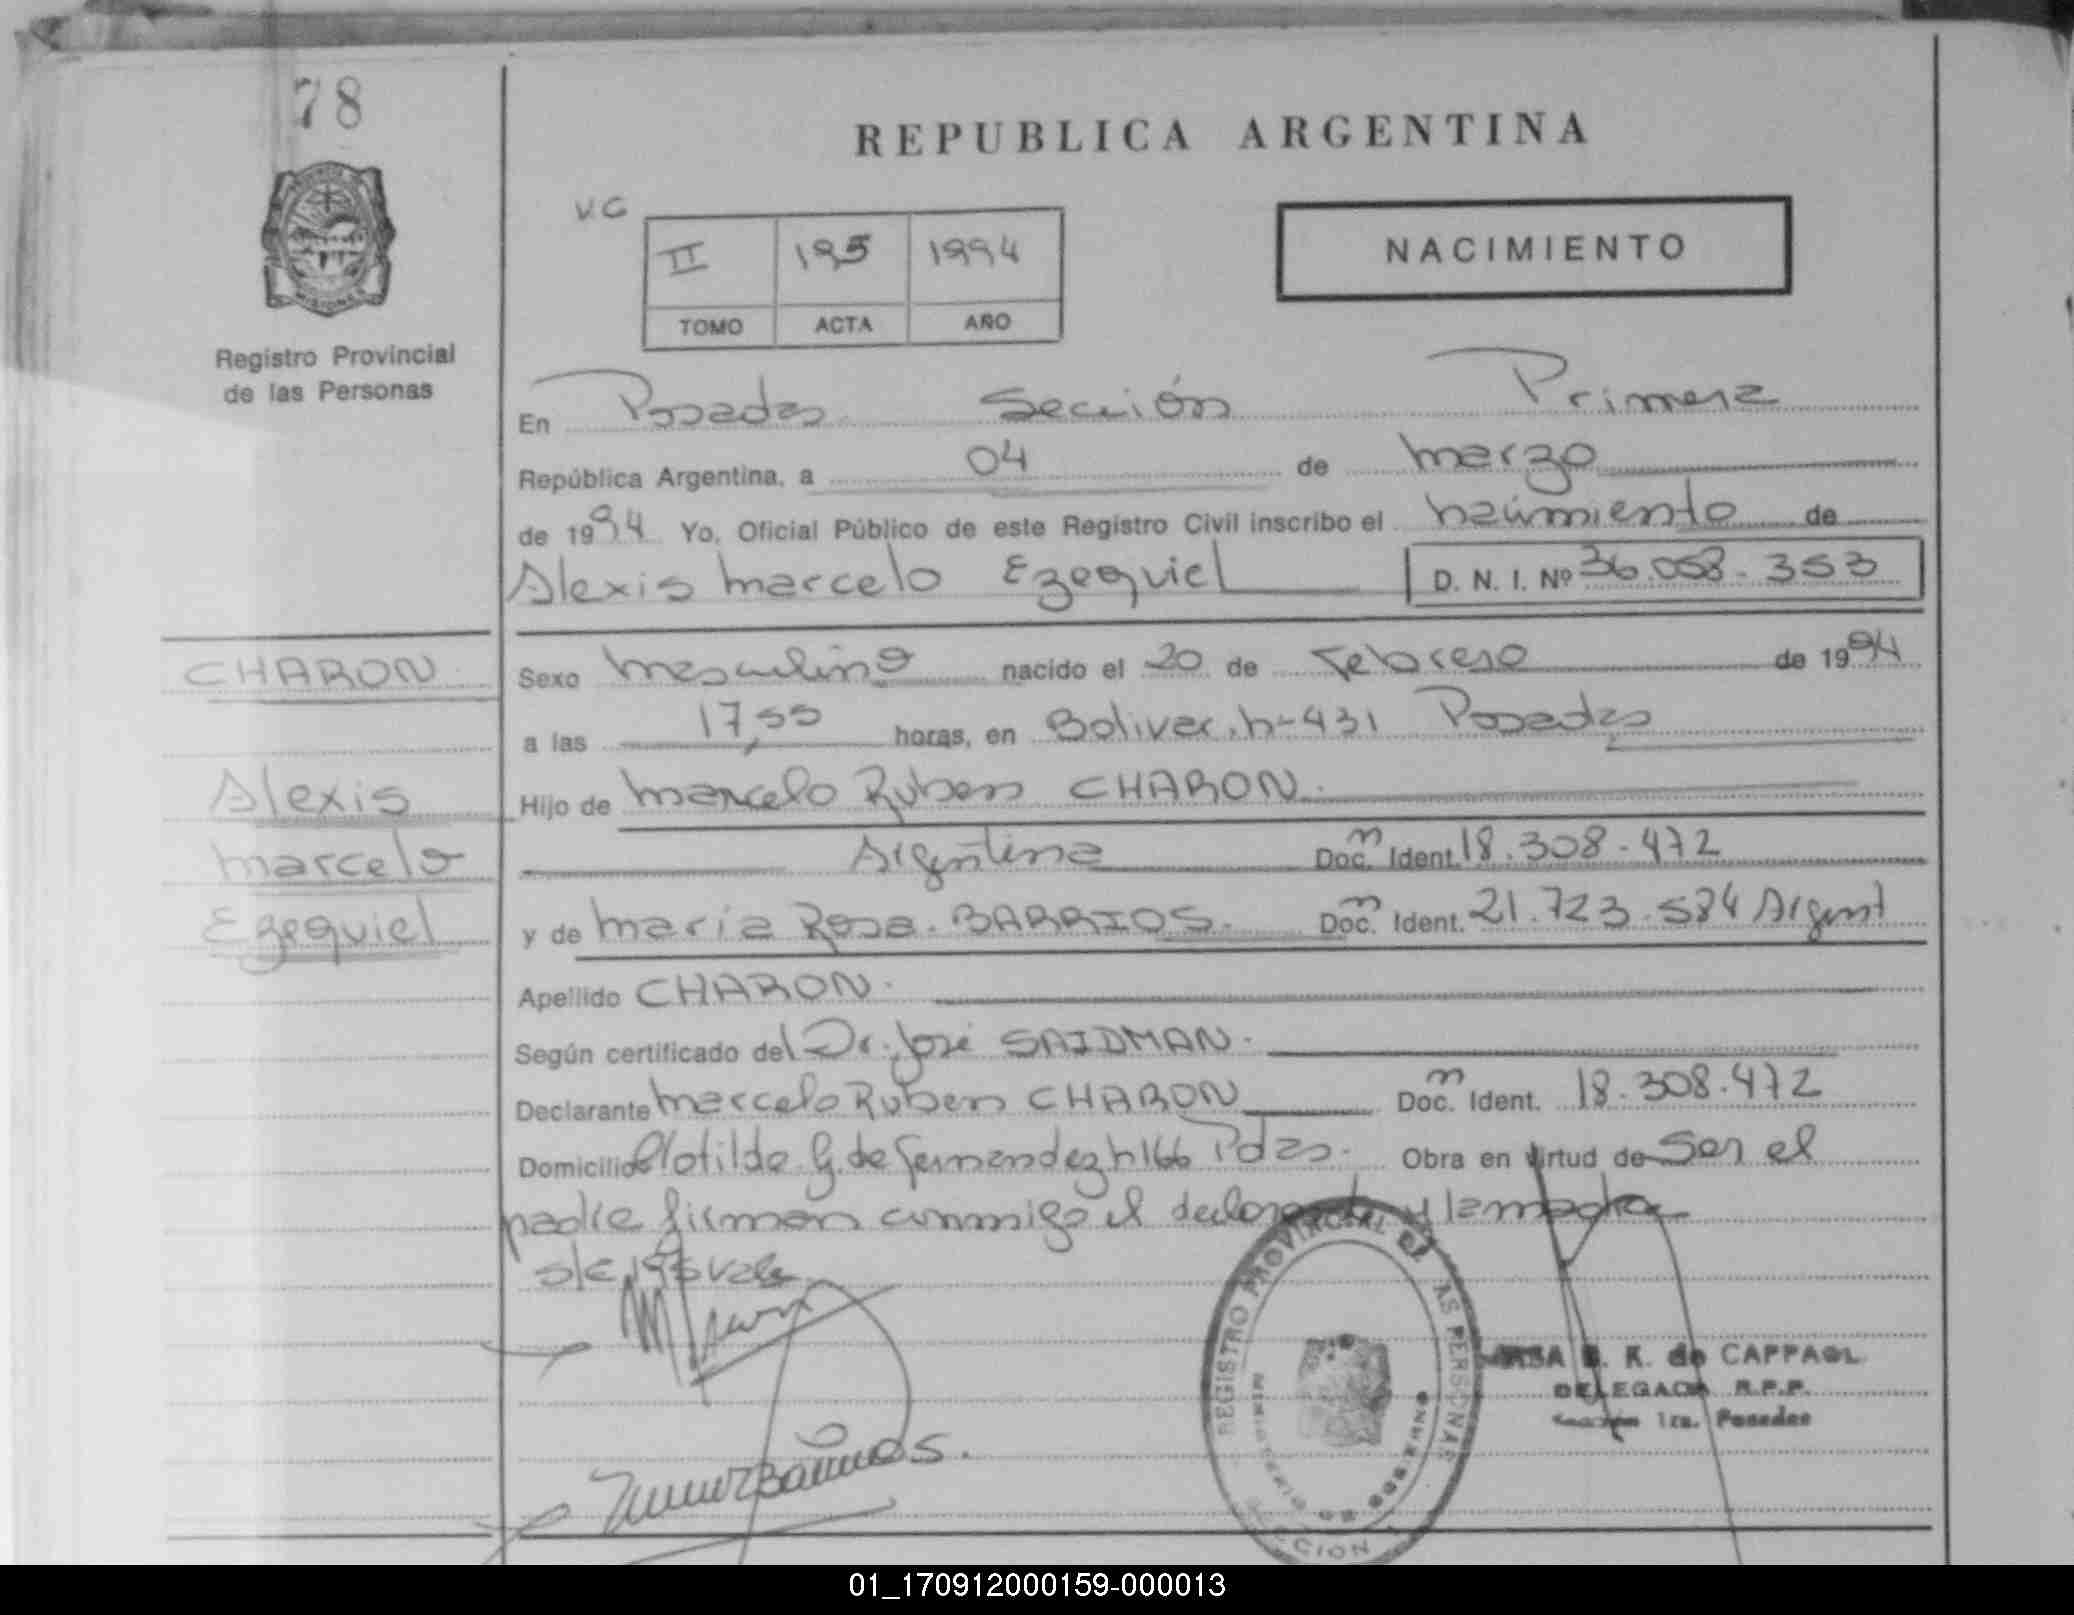 78
REPUBLICA ARGENTINA
V.G
II 195 1994
TOMO ACTA AÑO
NACIMIENTO
MISIONES
Registro Provincial
de las Personas
En Posadas Sección Primera
República Argentina, a 04 de marzo
de 1994 Yo, Oficial Público de este Registro Civil inscribo el nacimiento de
Alexis Marcelo Ezequiel D. N. I. Nº 36.058.353
CHARON
Sexo Masculino nacido el 20 de Febrero de 1994
a las 17,55 horas, en Bolivar. n-431 Posadas
Alexis
Hijo de Marcelo Ruben CHARON.
Marcelo
Argentina Doc. Ident. 18.308.472
Ezequiel
y de Maria Rosa. BARRIOS. Doc. Ident. 21.723.584 Argent
Apellido CHARON.
Según certificado del Dr. José SAIDMAN.
Declarante Marcelo Ruben CHARON Doc. Ident. 18.308.472
Domicilio Clotilde G. de Fernandez n 166 Pdas. Obra en virtud de Ser el
padre firman conmigo el declarante y la madre
s/e 195 vale
REGISTRO PROVINCIAL DE LAS PERSONAS
MINISTERIO DE GOBIERNO
SECCION
K. de CAPPAOL
DELEGADA R.P.P.
Sección 1ra. Posadas
01_170912000159-000013